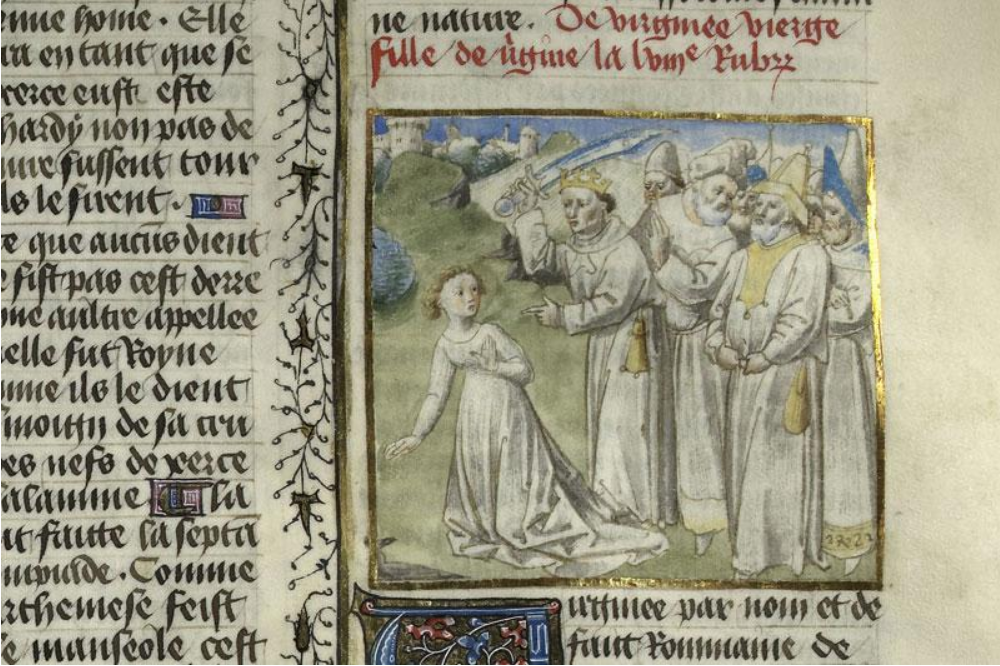 Elle
ra en tant que se
xerce eust este
hardy non pas de
ure fussent tour
ls le firent.
ce que aucūs dient
e fist pas cest derre
me aultre appellee
elle fut Royne
mme ils le dient
es nefs de xerce
la
nt faitte la septa
mpiade. Comme
rthemese feist
e manseole cest
ne nature. De virginee vierge
fille de v̄gine la lviije Rubr̄
irginee par nom et de
faut Rommaine de